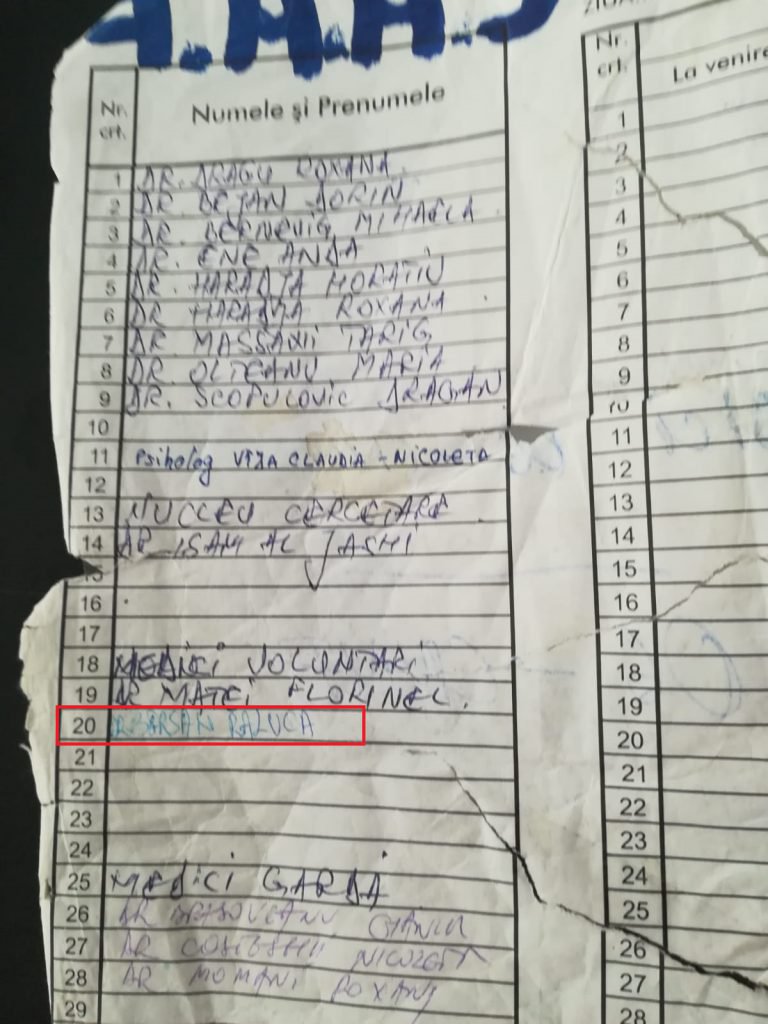 Nr. crt. Numele și Prenumele
1 DR. DRAGU ROXANA.
2 DR. BEJAN SORIN
3 DR. BERNEVIG MIHAELA
4 DR. ENE ANDA
5 DR. HARADJA HORATIU
6 DR HARADJA ROXANA
7 DR MASSANII TARIG
8 DR. OLTEANU MARIA
9 DR. SCOPULOVIC DRAGAN
10
11 Psiholog VIJA CLAUDIA - NICOLETA
12
13 NUCLEU CERCETARE
14 DR ISAM AL JASHI
15
16
17
18 MEDICI VOLUNTARI
19 DR MATEI FLORINEL.
20 DR BARSAN RALUCA
21
22
23
24
25 MEDICI GARDA
26 DR BRASOVEANU
27 DR NICOLETA
28 DR MOMANI ROXANA
29
Nr. crt. La venire
1
2
3
4
5
6
7
8
9
10
11
12
13
14
15
16
17
18
19
20
21
22
23
24
25
26
27
28